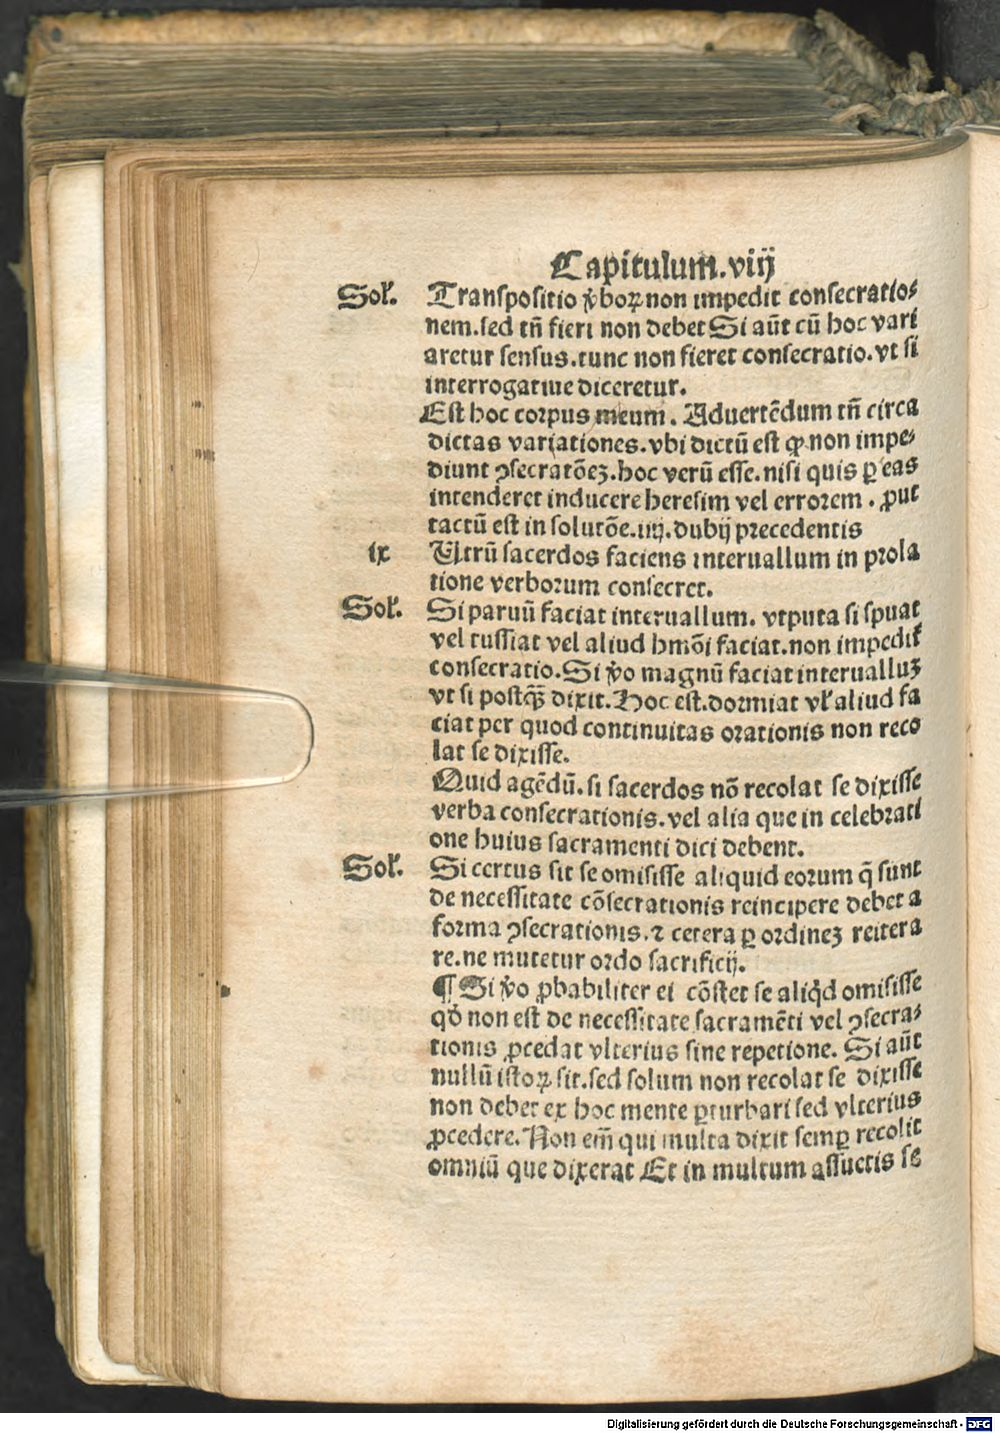 Capitulum.viij
Sol̕. Transpositio v̉boꝝ non impedit consecratio⸗
nem.sed tñ fieri non debet Si aũt cũ hoc vari
aretur sensus.tunc non fieret consecratio.vt si
interrogatiue diceretur.
Est hoc corpus meum. Aduertẽdum tñ circa
dictas variationes.vbi dictũ est ꝙ non impe⸗
diunt ꝯsecratõeꝫ.hoc verũ esse.nisi quis ꝑ eas
intenderet inducere heresim vel errorem. ꝓut
tactũ est in solutõe.iiij.dubij precedentis
ix Utrũ sacerdos faciens interuallum in prola
tione verborum consecret.
Sol̕. Si paruũ faciat interuallum. vtputa si spuat
vel tussiat vel aliud hmõi faciat.non impedit᷑
consecratio.Si v̉o magnũ faciat interualluꝫ
vt si postq̃ꝫ dixit.Hoc est.dormiat vl̕ aliud fa
ciat per quod continuitas orationis non reco
lat se dixisse.
Quid agẽdũ.si sacerdos nõ recolat se dixisse
verba consecrationis.vel alia que in celebrati
one huius sacramenti dici debent.
Sol̕. Si certus sit se omisisse aliquid eorum q̃ sunt
de necessitate cõsecrationis reincipere debet a
forma ꝯsecrationis.⁊ cetera ꝑ ordineꝫ reitera
re.ne mutetur ordo sacrificij.
¶ Si v̉o ꝓbabiliter ei cõstet se aliq̇d omisisse
qḋ non est de necessitate sacramẽti vel ꝯsecra⸗
tionis ꝓcedat vlterius sine repetione. Si aũt
nullũ istoꝝ sit.sed solum non recolat se dixisse
non debet ex hoc mente ꝑturbari sed vlterius
ꝓcedere.Non em̃ qui multa dixit semꝑ recolit
omniũ que dixerat Et in multum assuetis se
Digitalisierung gefördert durch die Deutsche Forschungsgemeinschaft - DFG